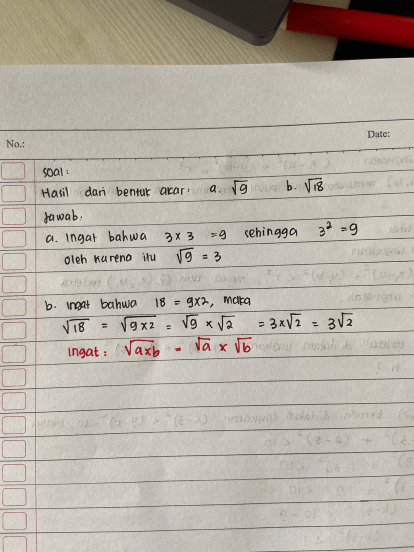 No.:
Date:
Soal:
Hasil dari bentuk akar: a. √9 b. √18
Jawab:
a. Ingat bahwa 3 x 3 = 9 sehingga 3² = 9
oleh karena itu √9 = 3
b. ingat bahwa 18 = 9x2, maka
√18 = √9x2 = √9 x √2 = 3x√2 = 3√2
Ingat: √axb = √a x √b